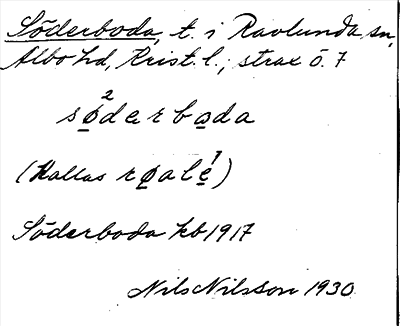 Söderboda, t. i Ravlunda sn,
Albo hd, Krist. l.; strax ö. 7
sø²derbada
(Kallas røale¹)
Söderboda kb 1917
Nils Nilsson 1930